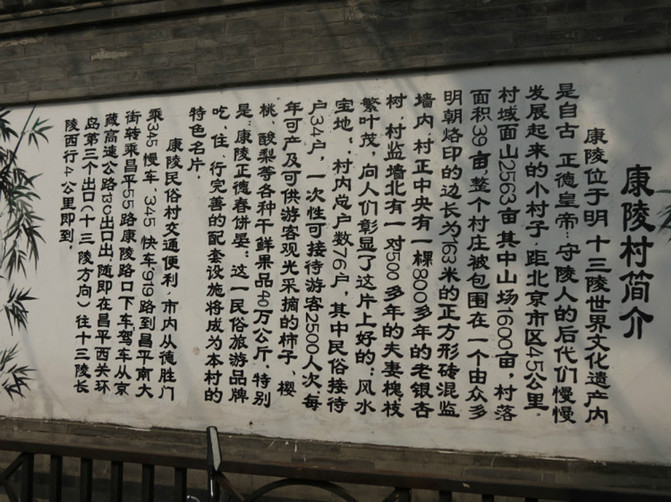 康陵村简介
康陵位于明十三陵世界文化遗产内
是自古正德皇帝·守陵人的后代们慢慢
发展起来的小村子·距北京市区45公里·
村域面山2563亩其中山场1600亩，村落
面积39亩，整个村庄被包围在一个由众多
明朝烙印的边长为163米的正方形砖混监
墙内，村正中央有一棵800多年的老银杏
树，村监墙北有一对500多年的夫妻槐，枝
繁叶茂，向人们彰显了这片上好的：风水
宝地：，村内总户数76户，其中民俗接待
户34户，一次性可接待游客2500人次每
年可产及可供游客观光采摘的柿子，樱
桃，酸梨等各种干鲜果品40万公斤，特别
是：康陵正德春饼宴：这一民俗旅游品牌
吃，住，行完善的配套设施将成为本村的
特色名片，
康陵民俗村交通便利·市内从德胜门
乘345慢车，345快车，919路到昌平南大
街转乘昌平55路康陵路口下车，驾车从京
藏高速公路13C出口出，随即在昌平西关环
岛第三个出口（十三陵方向）往十三陵长
陵西行4公里即到·